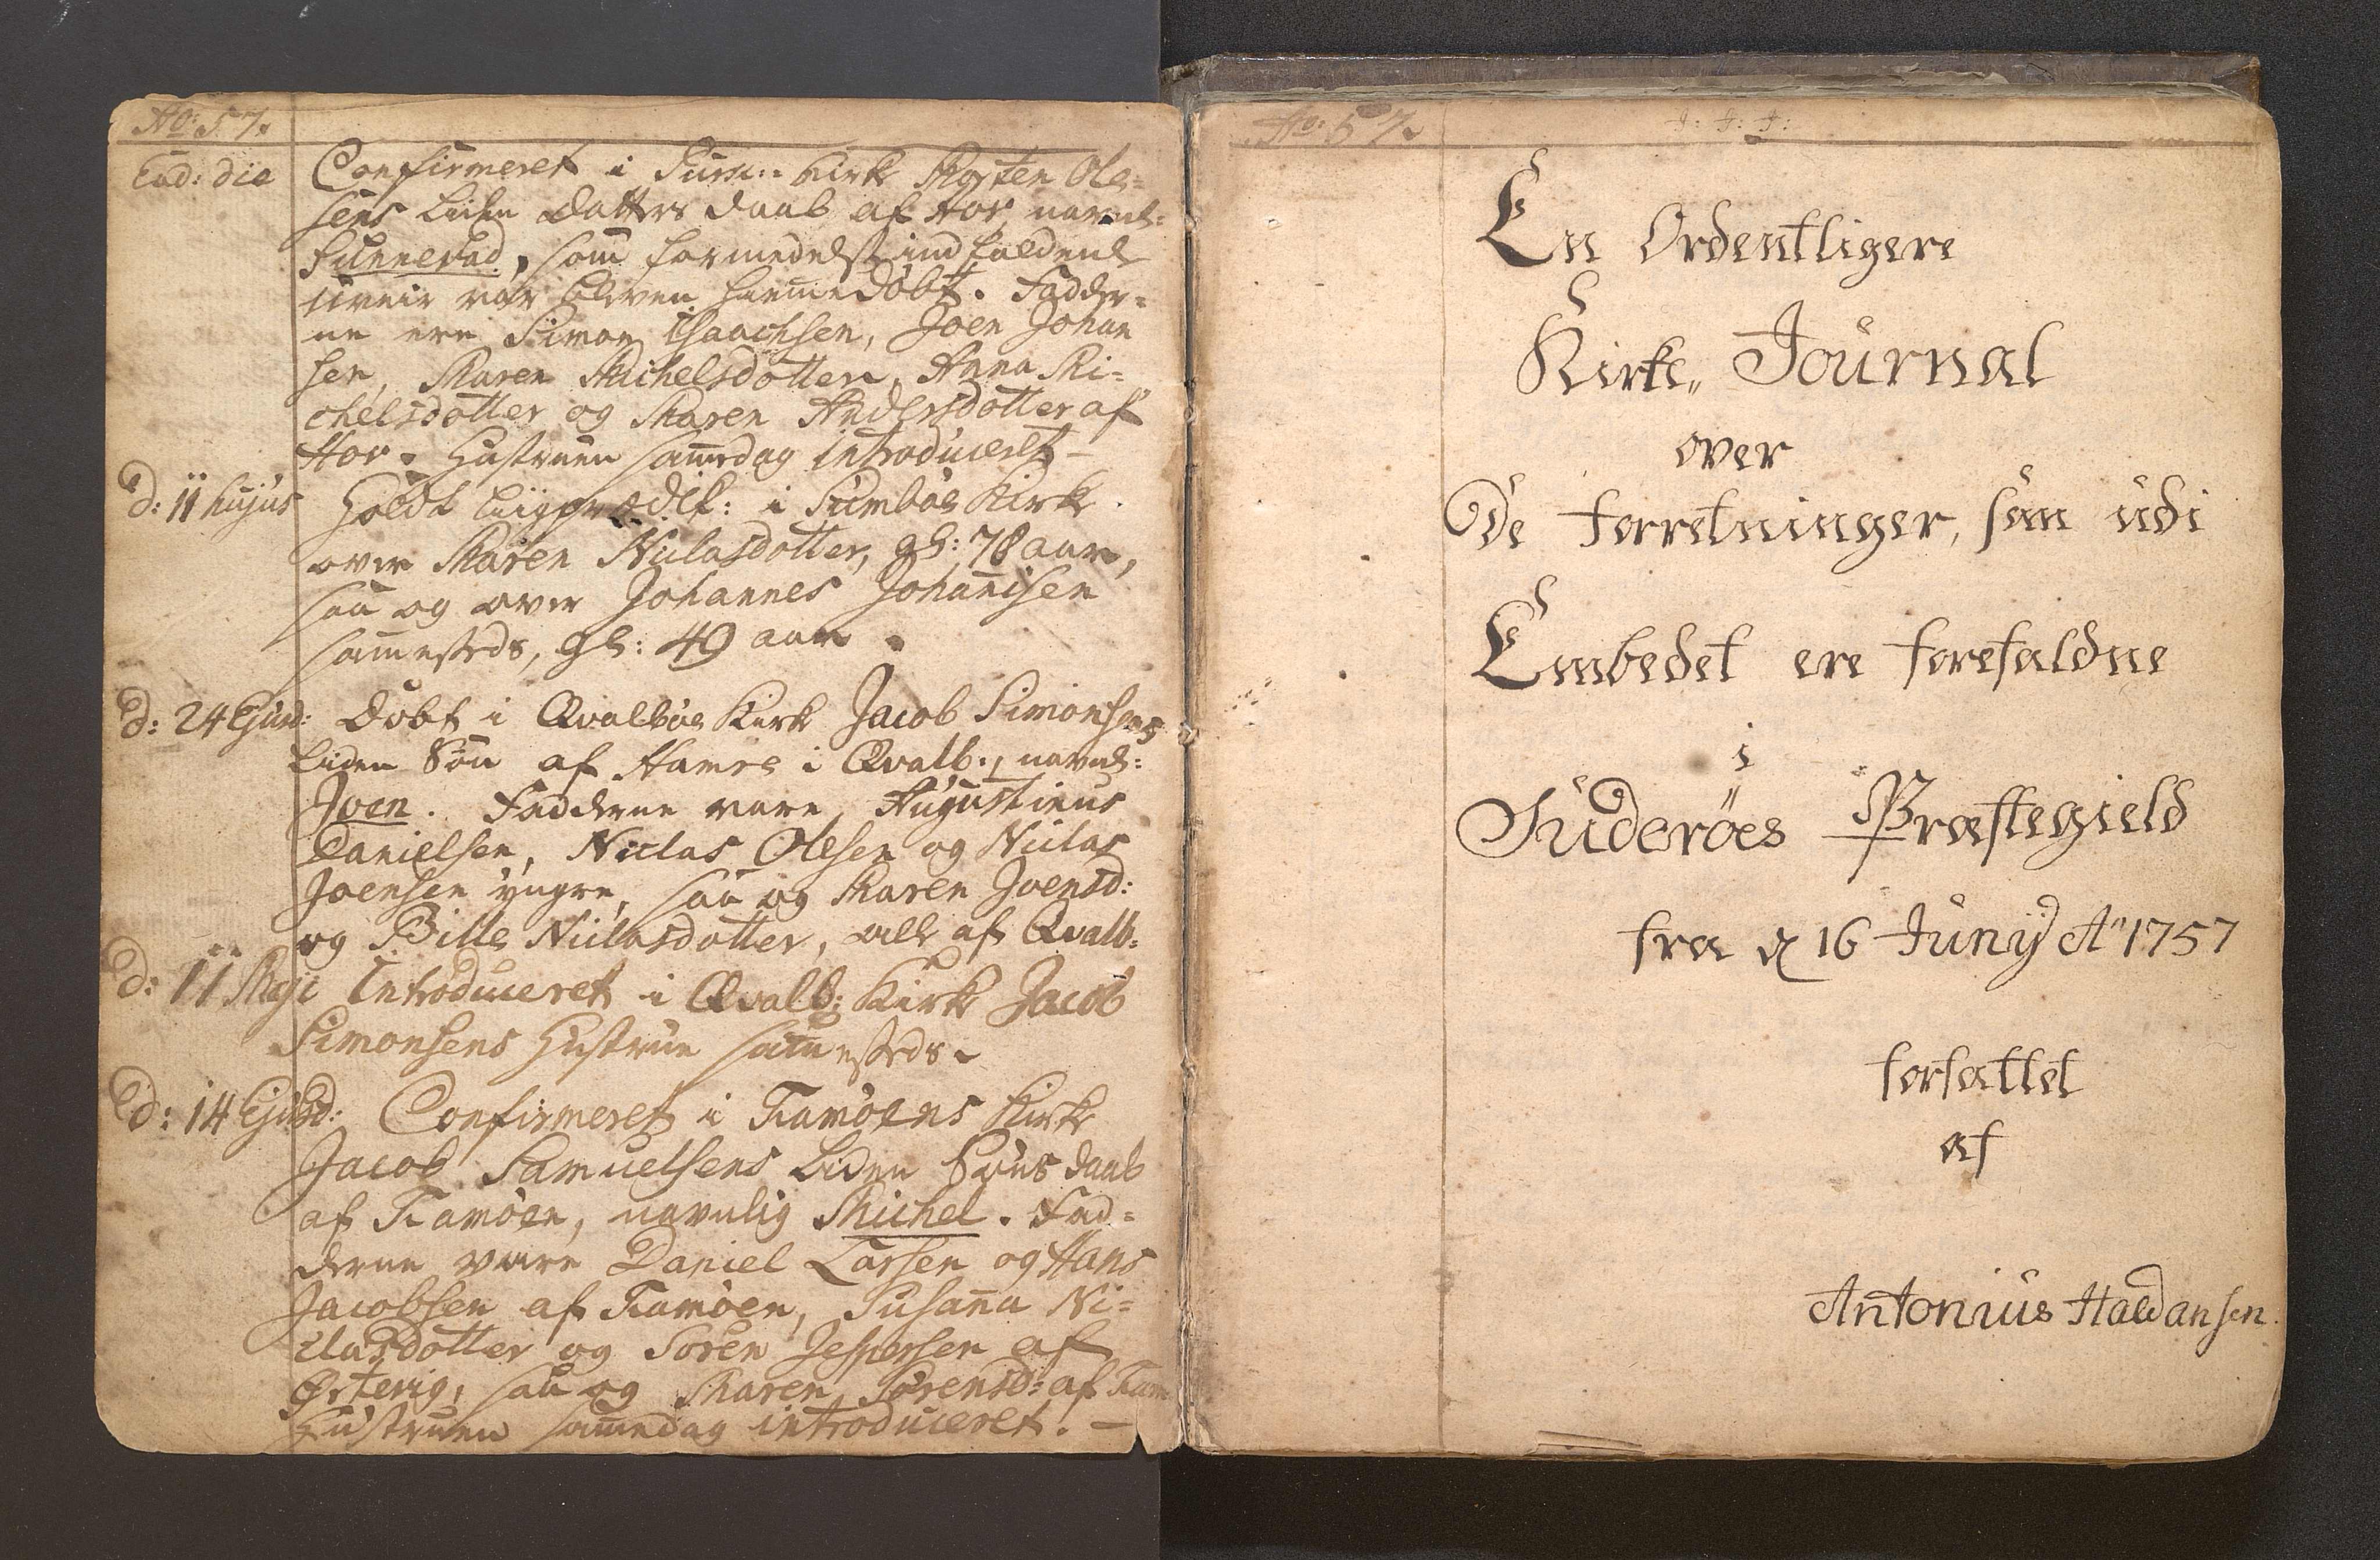 Ao: 57.
Ead: die Confirmeret i Kirke Morten Ole-
sens liden Datters Daab af Hov navnl:
Sunnevad, som formedelst indfaldende
uveir var bleven hiemmedöbt. Fadder-
ne ere Simon Isaachsen, Joen Johan
sen, Maren Michelsdotter, Anna Mi-
chelsdotter og Maren Andersdotter af
Hov. Hustruen sammedag introduceret -
d: 11 hujus Holdt Liigprædik: i Sumböe Kirke
over Maren Niclasdotter, gl: 78 aar,
saa og over Johannes Johannisen
sammesteds, gl: 49 aar.
d: 24 Ejusd: Döbt i Qvalböe Kirke Jacob Simonsens
liden Sön af Hamre i Qvalb:, navnl:
Joen. Fadderne vare Augustinus
Danielsen, Niclas Olesen og Niclas
Joensen yngre, saa og Maren Joensd:
og Bille Niclasdotter, alle af Qvalb:
d: 11 Maji Introduceret i Qvalb: Kirke Jacob
Simonsens Hustrue sammesteds.
d: 14 Ejusd: Confirmeret i Famöens Kirke
Jacob Samuelsens liden Söns Daab
af Famöen, navnlig Michel. Fad-
derne vare Daniel Larsen og Hans
Jacobsen af Famöen, Susanna Ni-
clasdotter og Sören Jespersen af
Örtevig, saa og Maren Sörensd: af Fam
Hustruen sammedag introduceret. -
Ao. 57.
J: F: F:
En Ordentligere
Kirke,, Journal
over
De Forretninger, som udi
Embedet ere forefaldne
i
Suderöes Præstegield
fra d 16 Junij Ao 1757
forfattet
af
Antonius Haldansen.